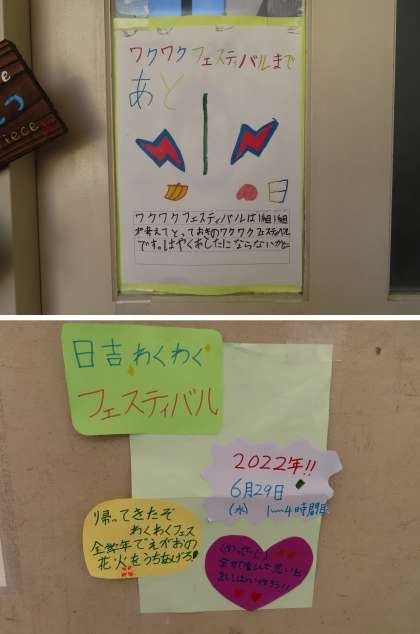 ワクワクフェスティバルまで
あと
1
日
ワクワクフェスティバルは1組1組
が考えてとっておきのワクワクフェスティバル
です。はやくあしたにならないかな
iece
日吉わくわく
フェスティバル
2022年!!
6月29日
(水) 1〜4時間目
帰ってきたぞ
わくわくフェス
全学年でえがおの
花火をうちあげろ!